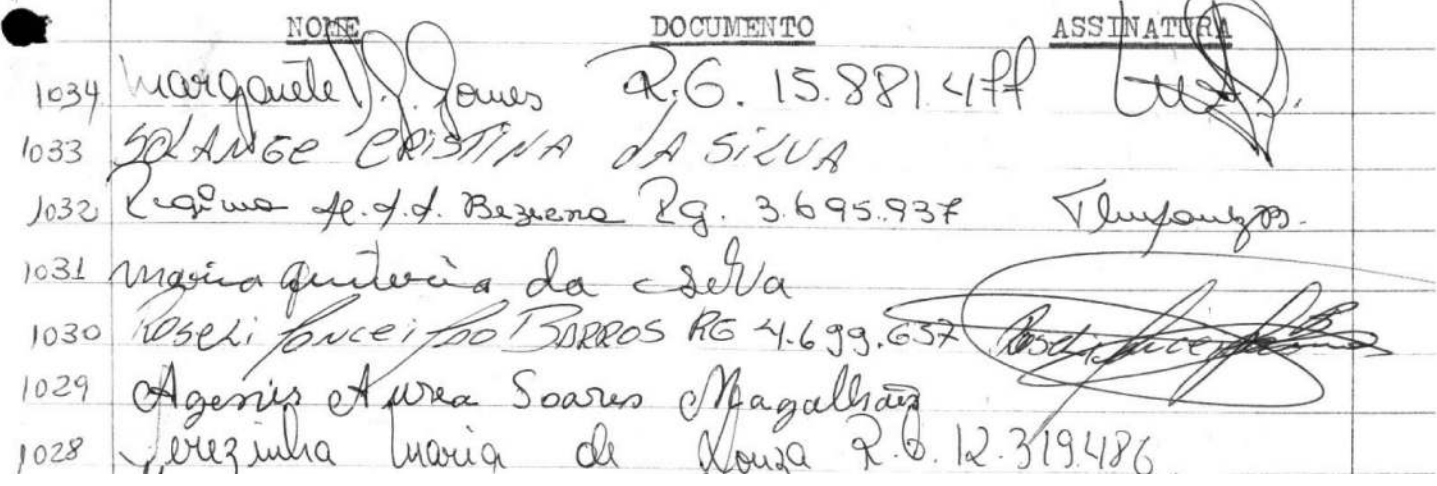 NOME DOCUMENTO ASSINATURA
1034 Margarete Gomes R.G. 15.881.477
1033 SOLANGE CRISTINA DA SILVA
1032 Regina Bezerra Rg. 3.695.937
1031 Maria Quiteria da Selva
1030 Roseli Conceição BARROS RG 4.699.657 Roseli
1029 Agenis Aurea Soares Magalhães
1028 Terezinha Maria de Souza R.G. 12.319.486